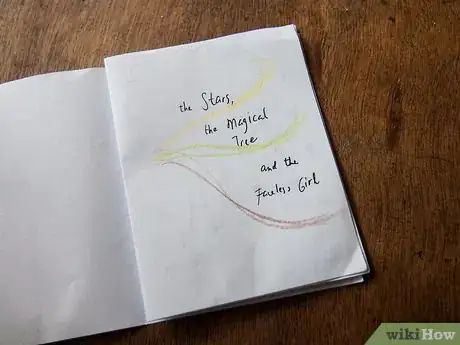 the Stars,
the Magical
Tree
and the
Faceless Girl
wikiHow